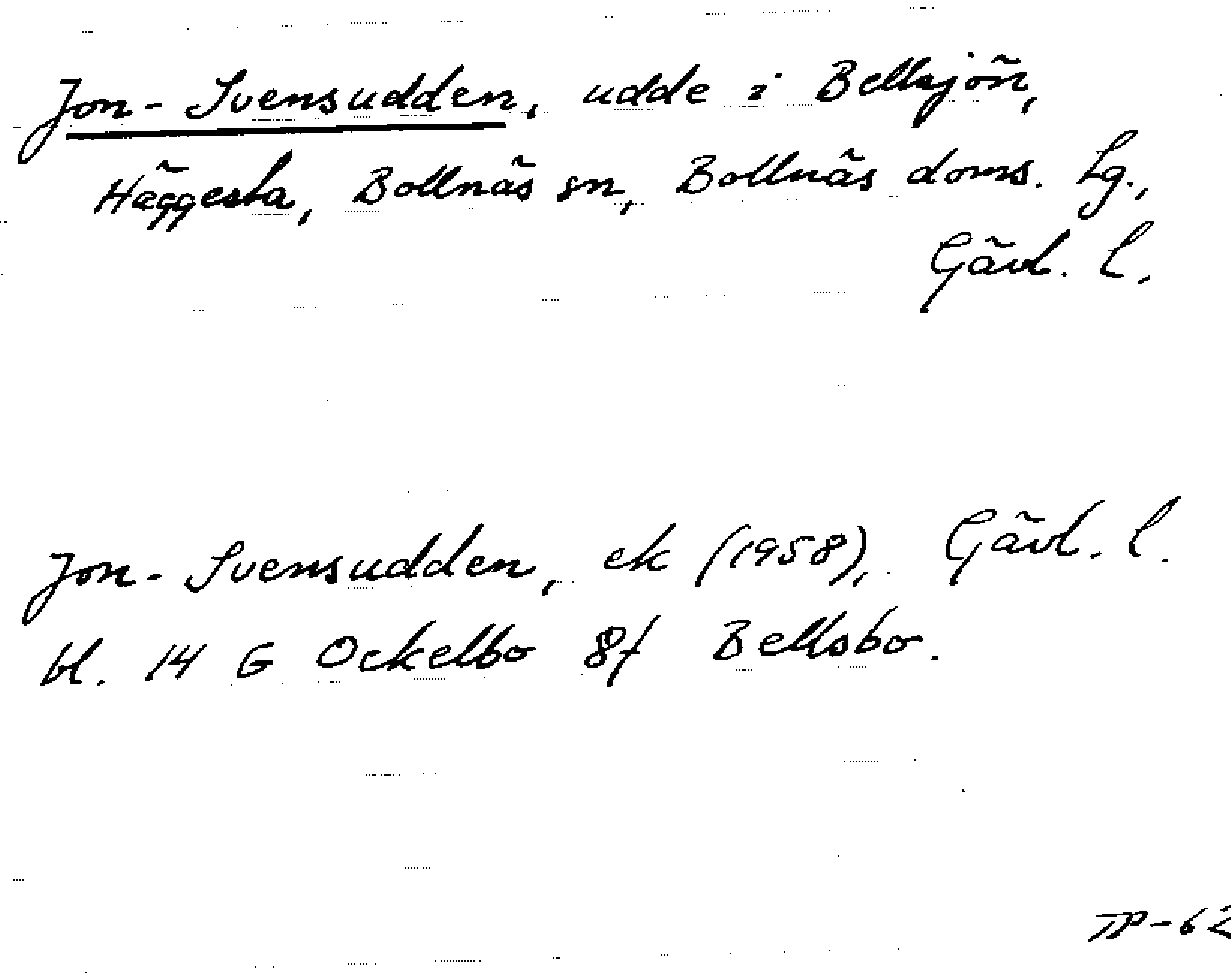 Jon-Svensudden, udde i Bellsjön,
Häggesta, Bollnäs sn, Bollnäs doms. lg.,
Gävl. l.
Jon-Svensudden, ek (1958), Gävl. l.
bl. 14 G Ockelbo 8f Bellsbo.
TP-62